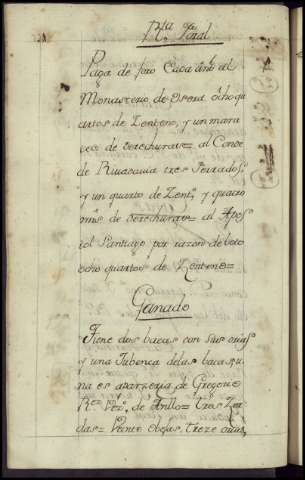 Rta Rl
Paga de foro Cada año al
Monasterio de Osera ocho qu
artos de Zenteno, y un mara
vedi de derechura= al Conde
de Rivadavia tres ferrados,
y un quarto de Zentº y quatro
mrs de derechura= al Apos
tol Santiago por razon de boto
ocho quartos de Zenteno=
Ganado
Tiene dos bacas con sus crias
y una Jubenca de las bacas, u
na es aparzeria de Gregorio
Rez Vezº de Anllo= tres Zer
das= Veinte obejas, treze crias,